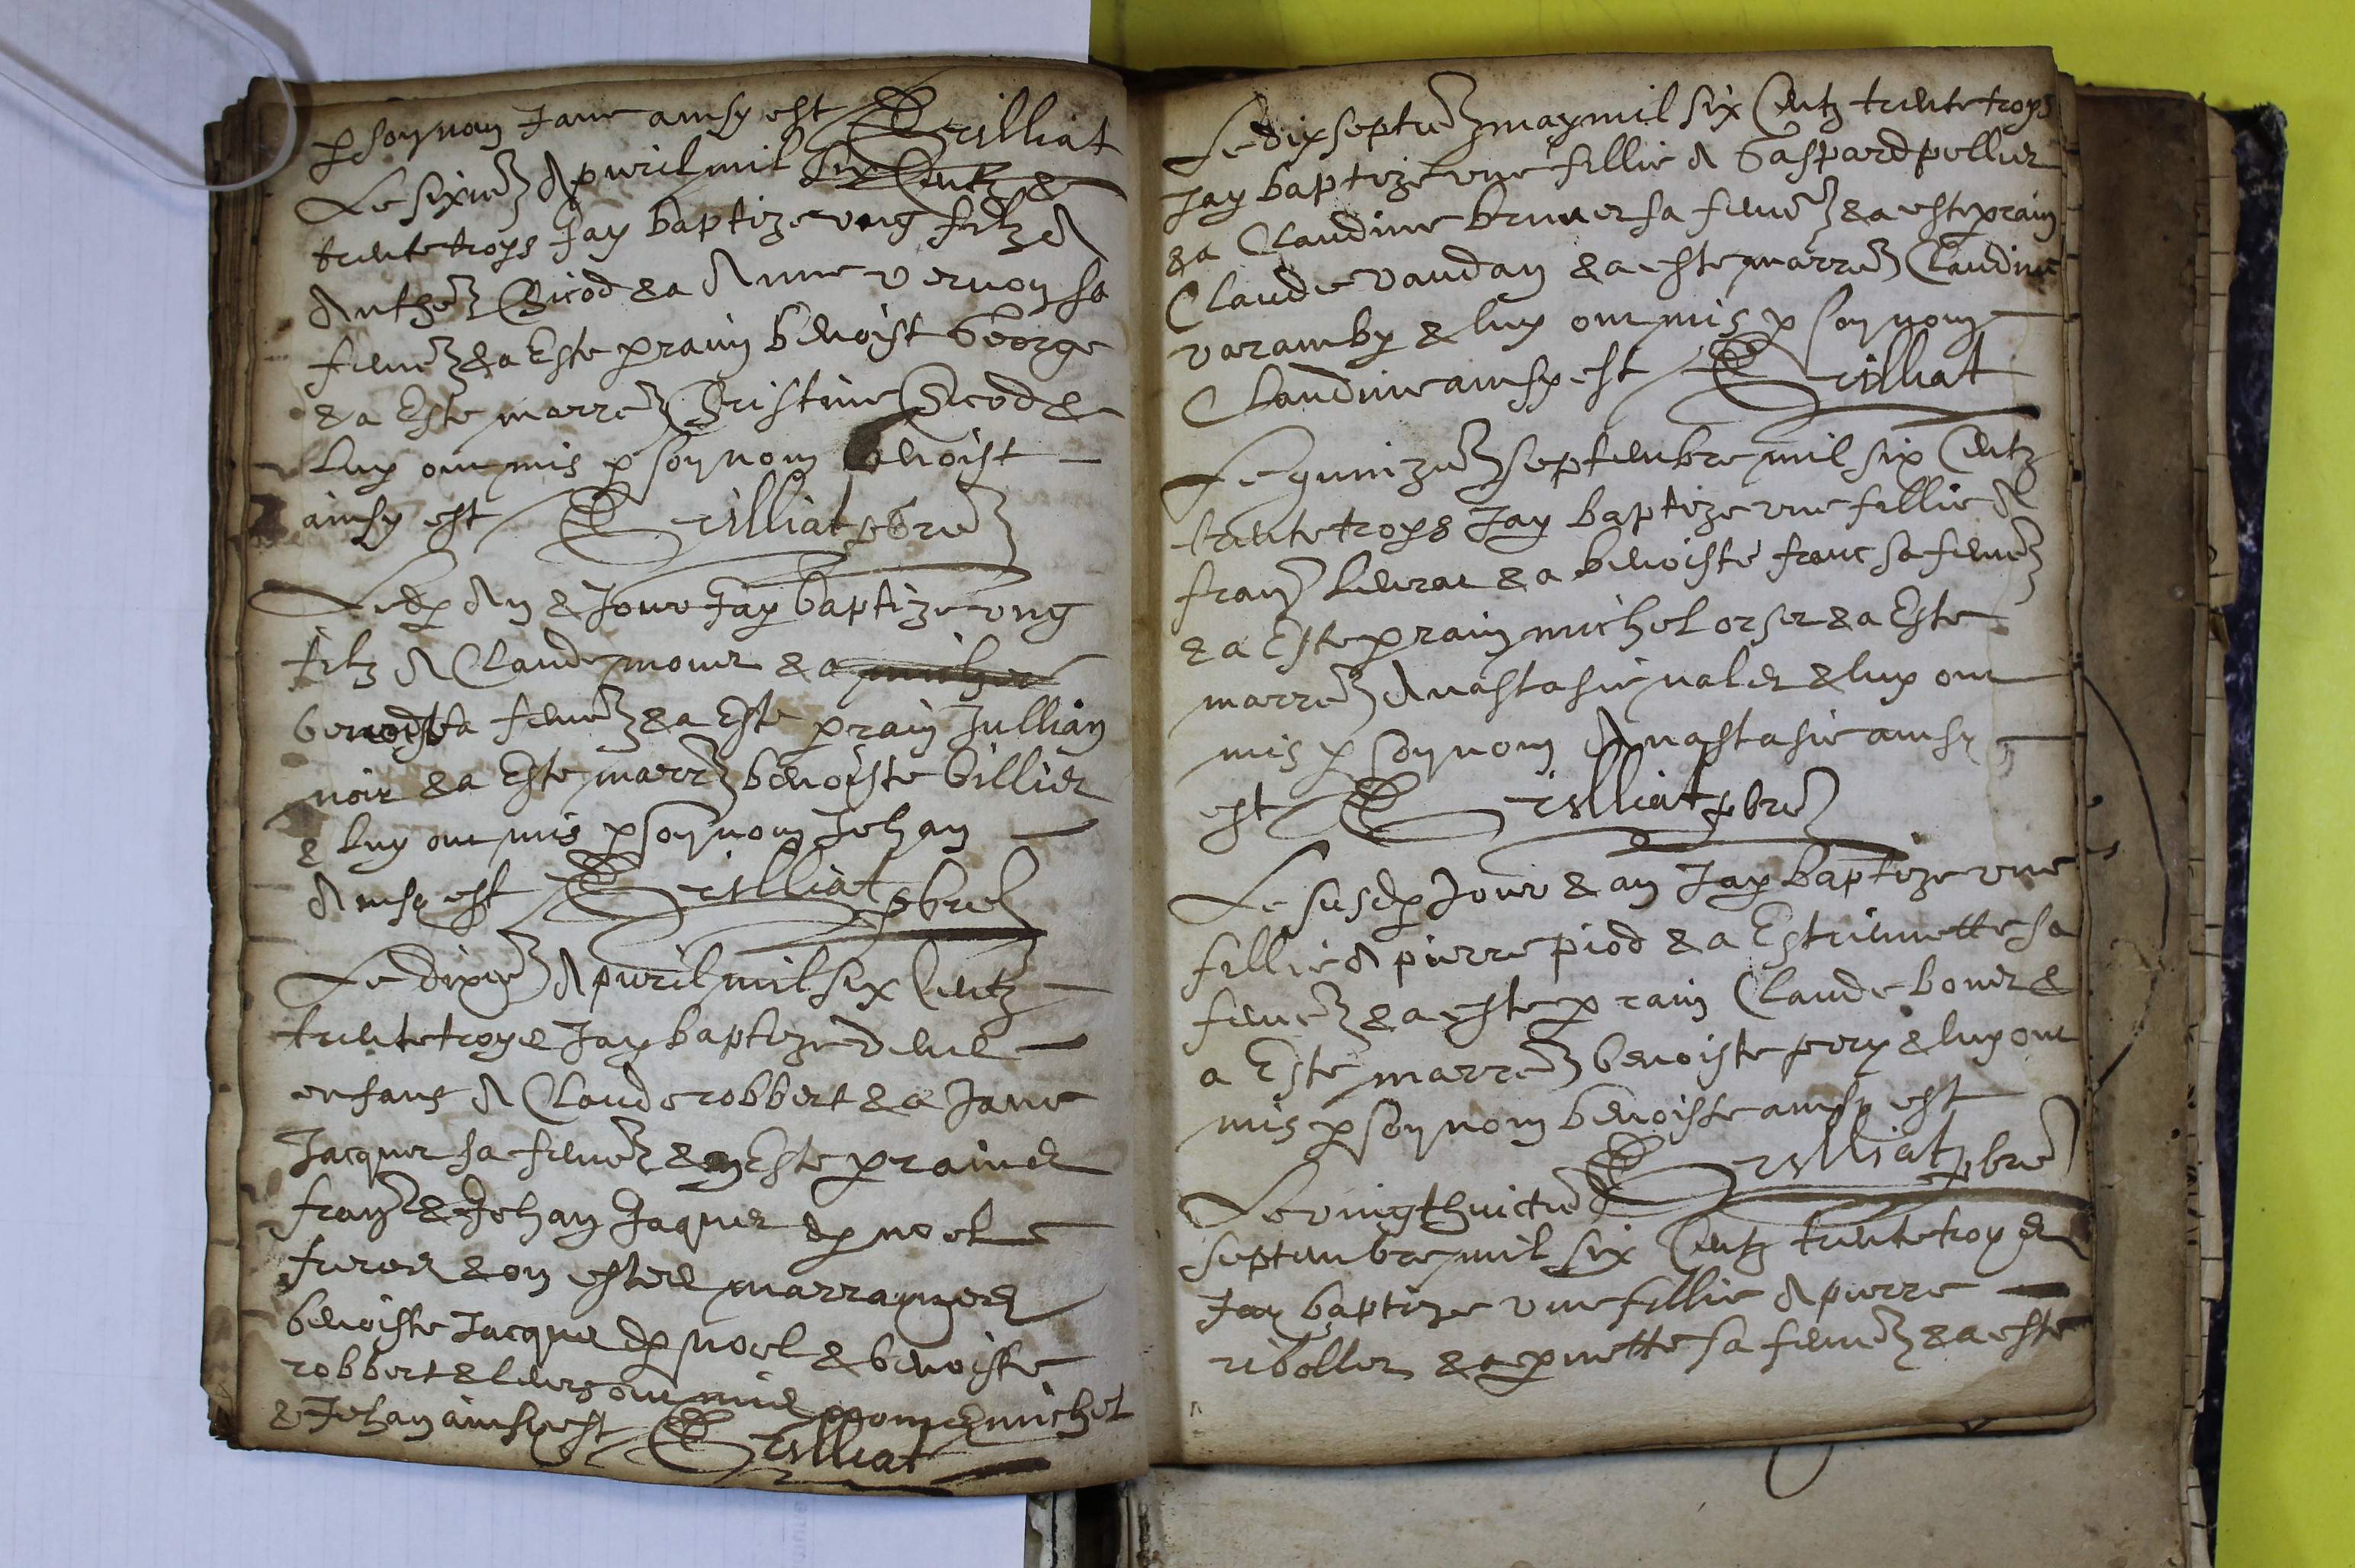 p soy nom Jane ainsy est Trilliat
Le sixie Apvril mil six Centz &
trente troys Jay baptize ung filz A
Anthe Chicod & a Anne vernoy sa
feme & a Este prain benoist George
& a Este marre Christine Chicod &
luy ont mis p soy nom benoist
ainsy est Trilliat pbre
Ledp An & Jour Jay baptize ung
filz A Claude monet & a
benoiste sa feme & a Este prain Jullian
noir & a Este marre benoiste billiet
& luy ont mis p soy nom Jehan
Ainsy est Trilliat pbre
Le dixie Apvril mil six Centz
trente troys Jay baptize deux
enfans A Claude robbert & a Jane
Jacquet sa feme & on Este prains
frans & Jehan Jaquet dp noel
freres & on estes marraynes
benoiste Jacquet dp noel & benoiste
robbert & leurs ont mis p nom michel
& Jehan ainsy est Trilliat
Le dix septie may mil six Centz trente troys
Jay baptize une fillie A Gaspard pellier
& a Claudine brunet sa feme & a este prain
Claude vaudan & a este marre Claudine
varamby & luy ont mis p soy nom
Claudine ainsy est Trilliat
Le quinzie septembre mil six Centz
trente troys Jay baptize une fillie A
frans & a benoiste franc sa feme
& a Este prain michel orset & a Este
marre Anastasie valet & luy ont
mis p soy nom Anastasie ainsy
est Trilliat pbre
Le susdp Jour & an Jay baptize une
fillie A pierre piod & a Estiennette sa
feme & a este prain Claude bonet &
a Este marre benoiste pery & luy ont
mis p soy nom benoiste ainsy est
Trilliat pbre
Le vingt huictie
septembre mil six Centz trente troys
Jay baptize une fillie A pierre
ribollet & a pnette sa feme & a este